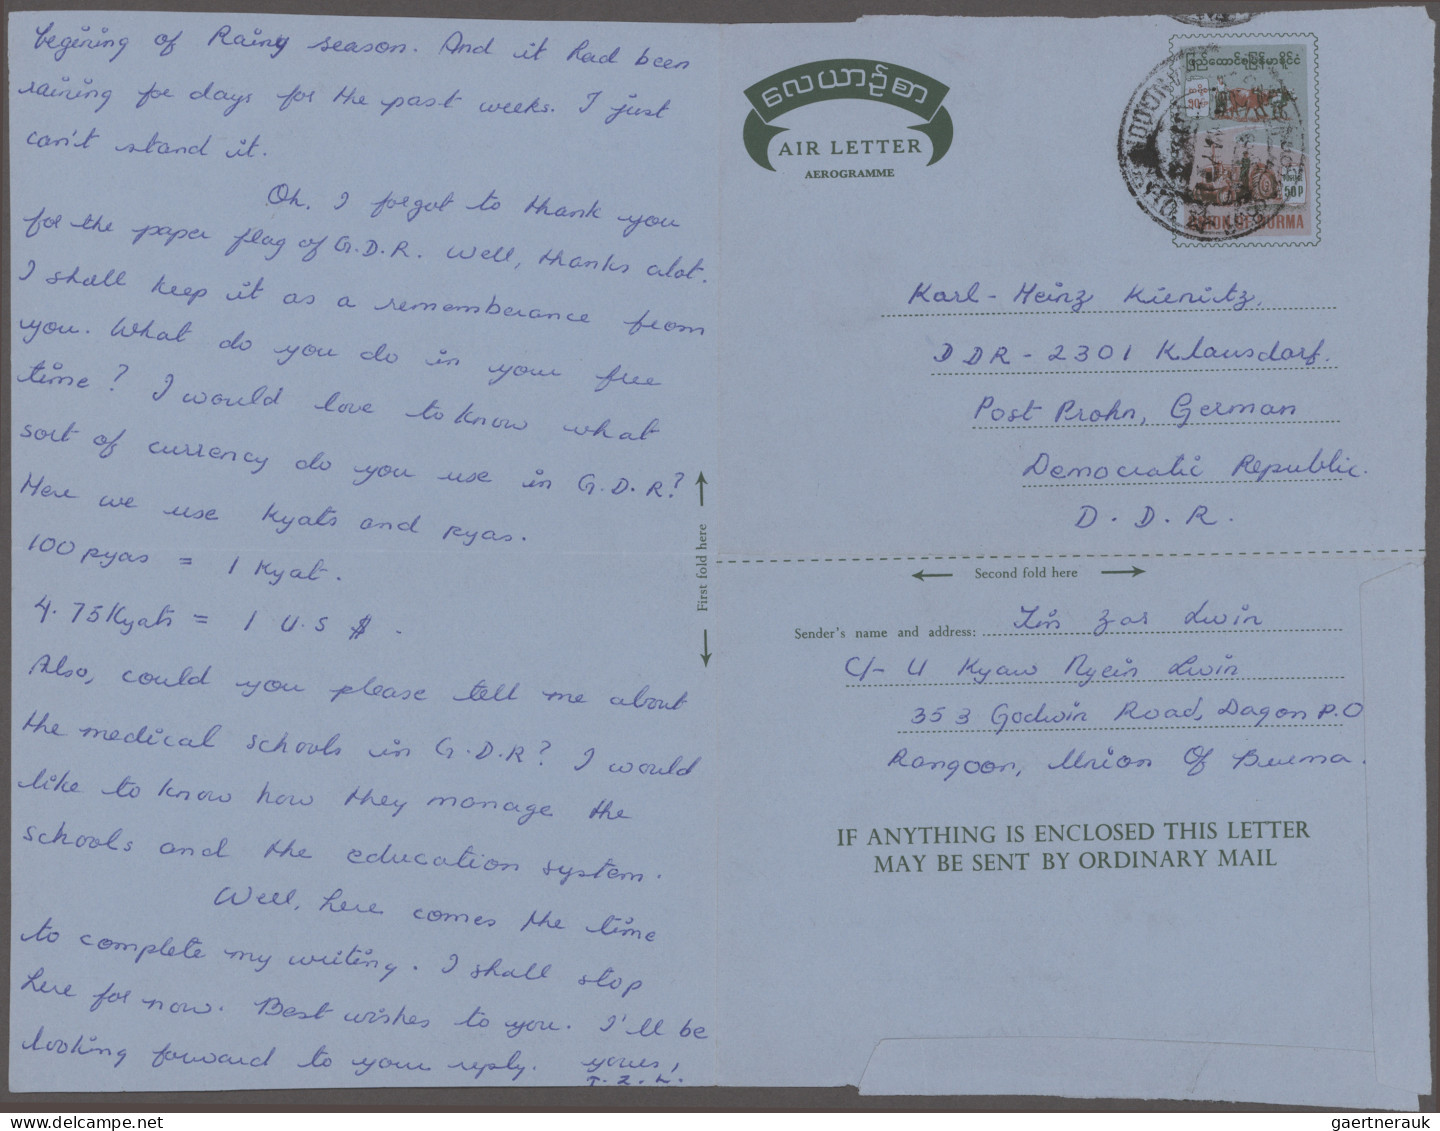 begining of Rainy season. And it had been
raining for days for the past weeks. I just
can't stand it.
Oh, I forgot to thank you
for the paper flag of G.D.R. Well, thanks alot.
I shall keep it as a rememberance from
you. What do you do in your free
time? I would love to know what
sort of currency do you use in G.D.R?
Here we use Kyats and pyas.
100 pyas = 1 Kyat.
4.75 Kyats = 1 U.S $.
Also, could you please tell me about
the medical schools in G.D.R? I would
like to know how they manage the
schools and the education system.
Well, here comes the time
to complete my writing. I shall stop
here for now. Best wishes to you. I'll be
looking forward to your reply. yours,
T.Z.L.
First fold here
လေယာဉ်စာ
AIR LETTER
AEROGRAMME
ပြည်ထောင်စုမြန်မာနိုင်ငံ
50P
UNION OF BURMA
Karl-Heinz Kienitz.
DDR-2301 Klausdorf.
Post Prohn, German
Democratic Republic.
D.D.R.
Second fold here
Sender's name and address: Tin Zar Lwin
C/- U Kyaw Nyein Lwin
353 Godwin Road, Dagon P.O
Rangoon, Union Of Burma.
IF ANYTHING IS ENCLOSED THIS LETTER
MAY BE SENT BY ORDINARY MAIL
gaertnerauk.com